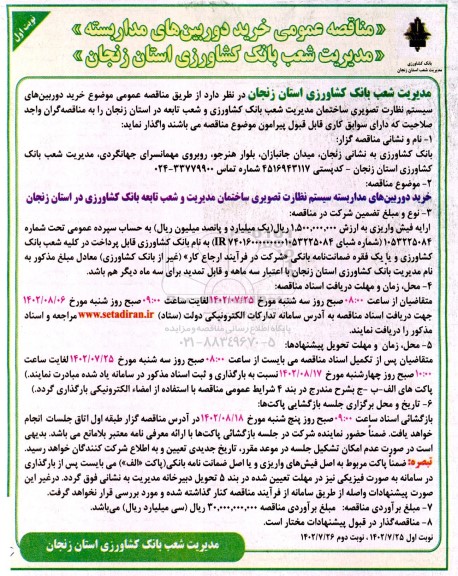 نوبت اول
« مناقصه عمومی خرید دوربین‌های مداربسته »
« مدیریت شعب بانک کشاورزی استان زنجان »
بانک کشاورزی
مدیریت شعب استان زنجان
مدیریت شعب بانک کشاورزی استان زنجان در نظر دارد از طریق مناقصه عمومی موضوع خرید دوربین‌های
سیستم نظارت تصویری ساختمان مدیریت شعب بانک کشاورزی و شعب تابعه در استان زنجان را به مناقصه‌گران واجد
صلاحیت که دارای سوابق کاری قابل قبول پیرامون موضوع مناقصه می باشند واگذار نماید:
۱- نام و نشانی مناقصه گزار:
بانک کشاورزی به نشانی زنجان، میدان جانبازان، بلوار هنرجو، روبروی مهمانسرای جهانگردی، مدیریت شعب بانک
کشاورزی استان زنجان - کدپستی ۴۵۱۶۹۴۳۱۱۷ شماره تماس ۳۳۷۷۹۹۰۰-۰۲۴
۲- موضوع مناقصه:
خرید دوربین‌های مداربسته سیستم نظارت تصویری ساختمان مدیریت و شعب تابعه بانک کشاورزی در استان زنجان
۳- نوع و مبلغ تضمین شرکت در مناقصه:
ارایه فیش واریزی به ارزش ۱,۵۰۰,۰۰۰,۰۰۰ ریال(یک میلیارد و پانصد میلیون ریال) به حساب سپرده عمومی تحت شماره
۱۰۵۳۲۲۵۰۸۴ (شماره شبای IR ۷۴۰۱۶۰۰۰۰۰۰۰۰۰۰۱۰۵۳۲۲۵۰۸۴) به نام بانک کشاورزی قابل پرداخت در کلیه شعب بانک
کشاورزی و یا یک فقره ضمانت‌نامه بانکی «شرکت در فرآیند ارجاع کار» (غیر از بانک کشاورزی) معادل مبلغ مذکور به
نام مدیریت بانک کشاورزی استان زنجان با اعتبار سه ماهه و قابل تمدید برای سه ماه دیگر هم باشد.
۴- محل، زمان و مهلت دریافت اسناد مناقصه:
متقاضیان از ساعت ۰۸:۰۰ صبح روز سه شنبه مورخ ۱۴۰۲/۰۷/۲۵ لغایت ساعت ۰۹:۰۰ صبح روز شنبه مورخ ۱۴۰۲/۰۸/۰۶
جهت دریافت اسناد مناقصه به آدرس سامانه تدارکات الکترونیکی دولت (ستاد) www.setadiran.ir مراجعه و اسناد
مذکور را دریافت نمایند.
پایگاه اطلاع رسانی مناقصه و مزایده
۰۲۱-۸۸۳۴۹۶۷۰-۵
۵- محل، زمان و مهلت تحویل پیشنهادها:
متقاضیان پس از تکمیل اسناد مناقصه می بایست از ساعت ۰۸:۰۰ صبح روز سه شنبه مورخ ۱۴۰۲/۰۷/۲۵ لغایت ساعت
۱۰:۰۰ صبح روز چهارشنبه مورخ ۱۴۰۲/۰۸/۱۷ نسبت به بارگذاری و ثبت اسناد مذکور در سامانه یاد شده مبادرت نمایند.(
پاکت های الف-ب -ج بشرح مندرج در بند ۴ شرایط عمومی مناقصه با استفاده از امضاء الکترونیکی بارگذاری گردد.)
۶- تاریخ و محل برگزاری جلسه بازگشایی پاکت‌ها:
بازگشائی اسناد ساعت ۰۹:۰۰ صبح روز پنج شنبه مورخ ۱۴۰۲/۰۸/۱۸ در آدرس مناقصه گزار طبقه اول اتاق جلسات انجام
خواهد یافت. ضمناً حضور نماینده شرکت در جلسه بازگشائی پاکت‌ها با ارائه معرفی نامه معتبر بلامانع می باشد. بدیهی
است در صورت عدم امکان تشکیل جلسه در موعد مقرر، تاریخ جدیدی تعیین و به اطلاع شرکت کنندگان خواهد رسید.
تبصره: ضمناً پاکت مربوط به اصل فیش‌های واریزی و یا اصل ضمانت نامه بانکی(پاکت «الف») می بایست پس از بارگذاری
در سامانه به صورت فیزیکی نیز در مهلت تعیین شده در بند ۵ تحویل دبیرخانه مدیریت به نشانی فوق گردد. درغیر این
صورت پیشنهادات واصله از طریق سامانه از فرآیند مناقصه کنار گذاشته شده و مورد بررسی قرار نخواهد گرفت.
۷- مبلغ برآوردی مناقصه: مبلغ برآوردی مناقصه ۳۰,۰۰۰,۰۰۰,۰۰۰ ریال (سی میلیارد ریال) می‌باشد.
۸- مناقصه‌گذار در قبول پیشنهادات مختار است.
نوبت اول ۱۴۰۲/۷/۲۵، نوبت دوم ۱۴۰۲/۷/۲۶
مدیریت شعب بانک کشاورزی استان زنجان